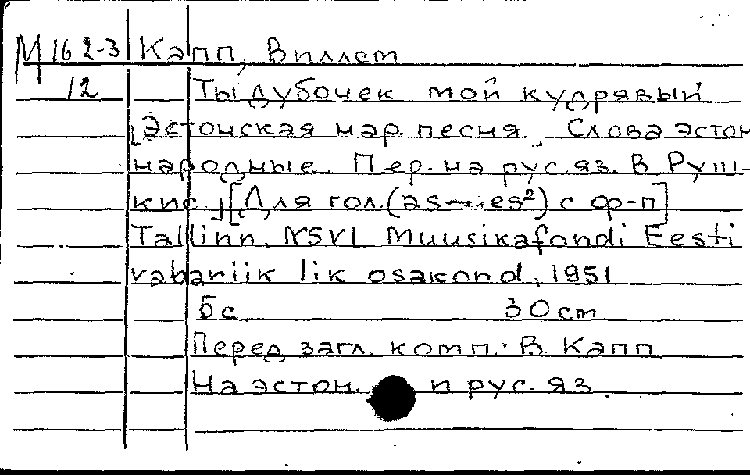 М 16 2-3 Капп, Виллем
12 Ты дубочек мой кудрявый
[Эстонская нар. песня. Слова эстон
народные. Пер. на рус. яз. В Руш-
кис.] [Для гол. (as—es²) с ф-п]
Tallinn. NSVL Muusikafondi Eesti
vabariik lik osakond, 1951
5 с. 30 cm
Перед загл. комп.: В. Капп
На эстон. и рус. яз.